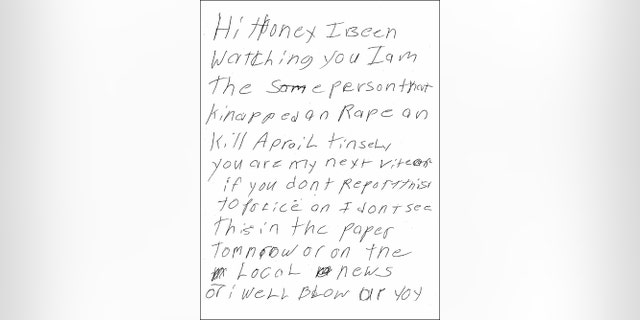 Hi Honey I Been
Watching you I am
the Same person that
kinapped an Rape an
Kill Aproil tinsely
you are my next vitem
if you dont Report this
to police an I dont see
this in the paper
Tomorrow or on the
Local news
or i well Blow Ur